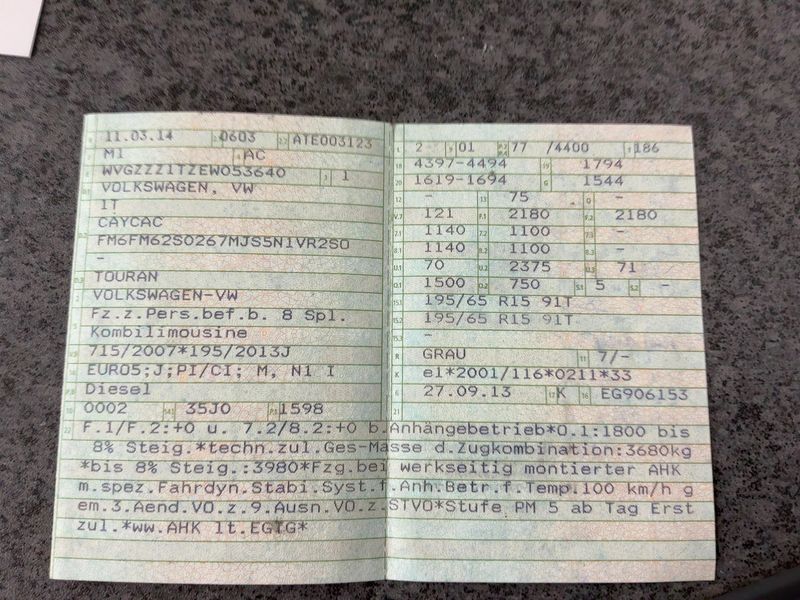 11.03.14 0603 ATE003123
M1 AC
WVGZZZ1TZEW053640 1
VOLKSWAGEN, VW
1T
CAYCAC
FM6FM62S0267MJS5N1VR2S0
-
TOURAN
VOLKSWAGEN-VW
Fz.z.Pers.bef.b. 8 Spl.
Kombilimousine
715/2007*195/2013J
EURO5;J;PI/CI; M, N1 I
Diesel
0002 35J0 1598
L 2 9 01 P.2 P.4 77 /4400 T 186
18 4397-4494 19 1794
20 1619-1694 G 1544
12 - 13 75 Q -
V.7 121 F.1 2180 F.2 2180
7.1 1140 7.2 1100 7.3 -
8.1 1140 8.2 1100 8.3 -
U.1 70 U.2 2375 U.3 71
O.1 1500 O.2 750 S.1 5 S.2 -
15.1 195/65 R15 91T
15.2 195/65 R15 91T
15.3 -
R GRAU 11 7/-
K e1*2001/116*0211*33
6 27.09.13 17 K 16 EG906153
21
22 F.1/F.2:+0 u. 7.2/8.2:+0 b.Anhängebetrieb*O.1:1800 bis
8% Steig.*techn.zul.Ges-Masse d.Zugkombination:3680kg
*bis 8% Steig.:3980*Fzg.bei werkseitig montierter AHK
m.spez.Fahrdyn.Stabi.Syst.f.Anh.Betr.f.Temp.100 km/h g
em.3.Aend.VO.z.9.Ausn.VO.z.STVO*Stufe PM 5 ab Tag Erst
zul.*ww.AHK lt.EGTG*